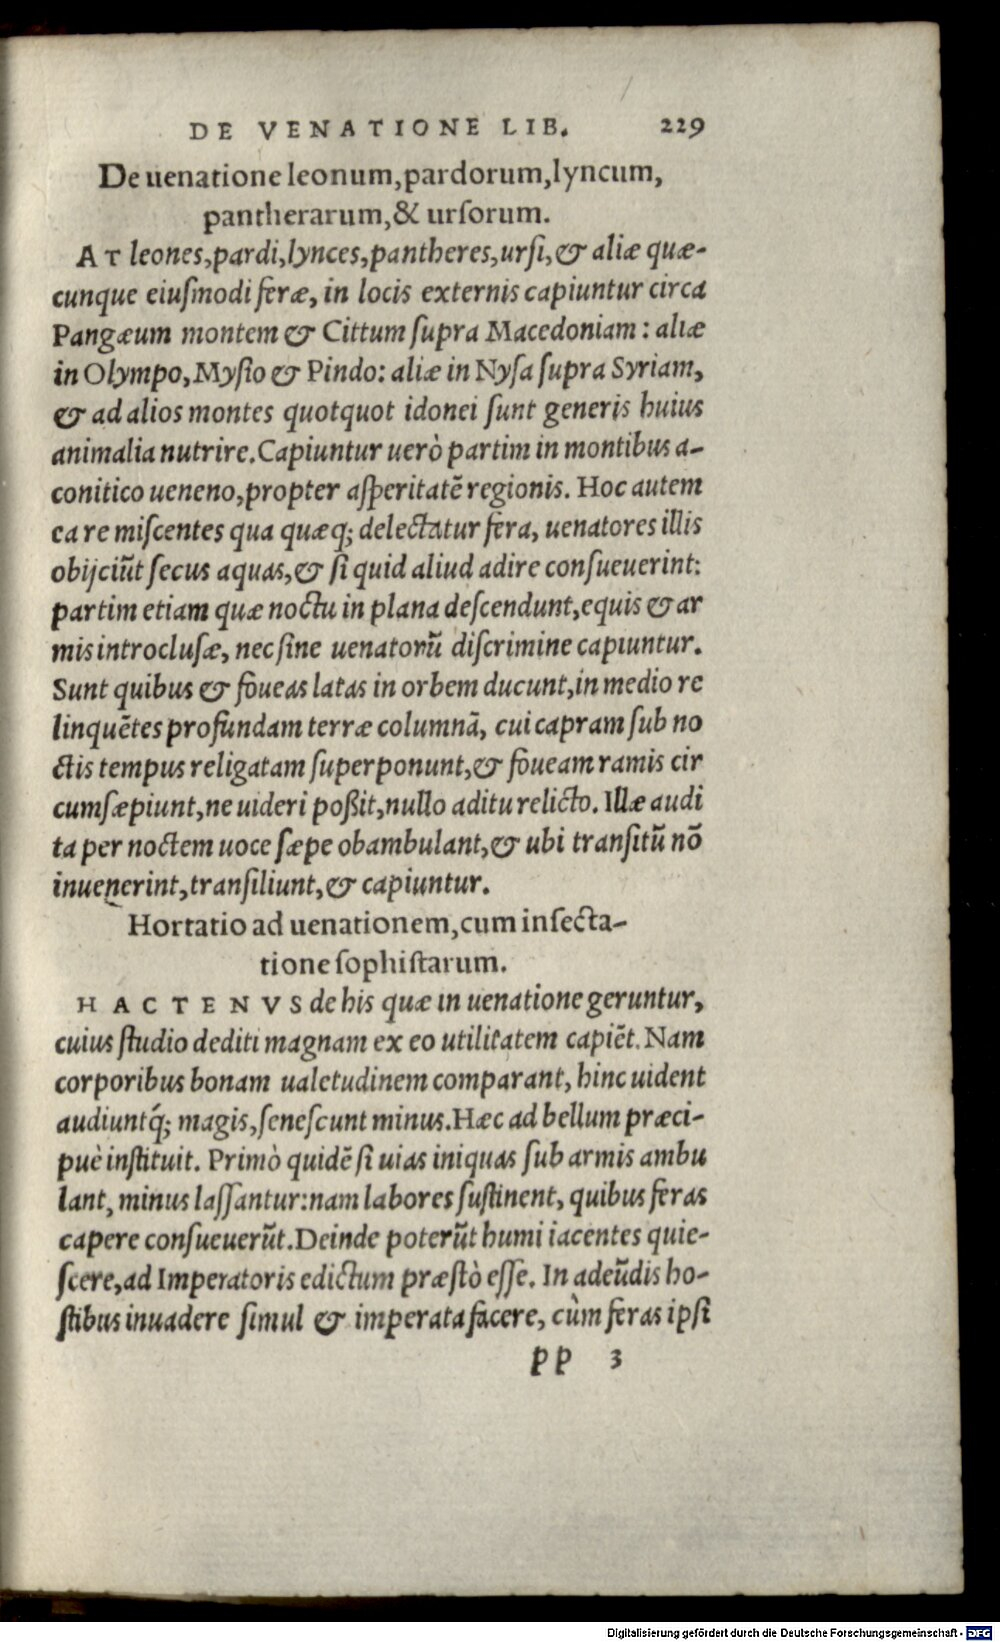 DE VENATIONE LIB. 229
De uenatione leonum, pardorum, lyncum,
pantherarum, & urſorum.
AT leones, pardi, lynces, pantheres, urſi, & aliæ quæ-
cunque eiuſmodi feræ, in locis externis capiuntur circa
Pangæum montem & Cittum ſupra Macedoniam: aliæ
in Olympo, Myſio & Pindo: aliæ in Nyſa ſupra Syriam,
& ad alios montes quotquot idonei ſunt generis huius
animalia nutrire. Capiuntur uerò partim in montibus a-
conitico ueneno, propter aſperitatē regionis. Hoc autem
ea re miſcentes qua quæq; delectatur fera, uenatores illis
obijciūt ſecus aquas, & ſi quid aliud adire conſueuerint:
partim etiam quæ noctu in plana deſcendunt, equis & ar
mis introcluſæ, nec ſine uenatorū diſcrimine capiuntur.
Sunt quibus & foueas latas in orbem ducunt, in medio re
linquētes profundam terræ columnā, cui capram ſub no
ctis tempus religatam ſuperponunt, & foueam ramis cir
cumſæpiunt, ne uideri poßit, nullo aditu relicto. Illæ audi
ta per noctem uoce ſæpe obambulant, & ubi tranſitū nō
inuenerint, tranſiliunt, & capiuntur.
Hortatio ad uenationem, cum inſecta-
tione ſophiſtarum.
HACTENVS de his quæ in uenatione geruntur,
cuius ſtudio dediti magnam ex eo utilitatem capiēt. Nam
corporibus bonam ualetudinem comparant, hinc uident
audiuntq́; magis, ſeneſcunt minus. Hæc ad bellum præci-
puè inſtituit. Primò quidē ſi uias iniquas ſub armis ambu
lant, minus laſſantur: nam labores ſuſtinent, quibus feras
capere conſueuerūt. Deinde poterūt humi iacentes quie-
ſcere, ad Imperatoris edictum præſtò eſſe. In adeūdis ho-
ſtibus inuadere ſimul & imperata facere, cùm feras ipſi
pp 3
Digitalisierung gefördert durch die Deutsche Forschungsgemeinschaft - DFG